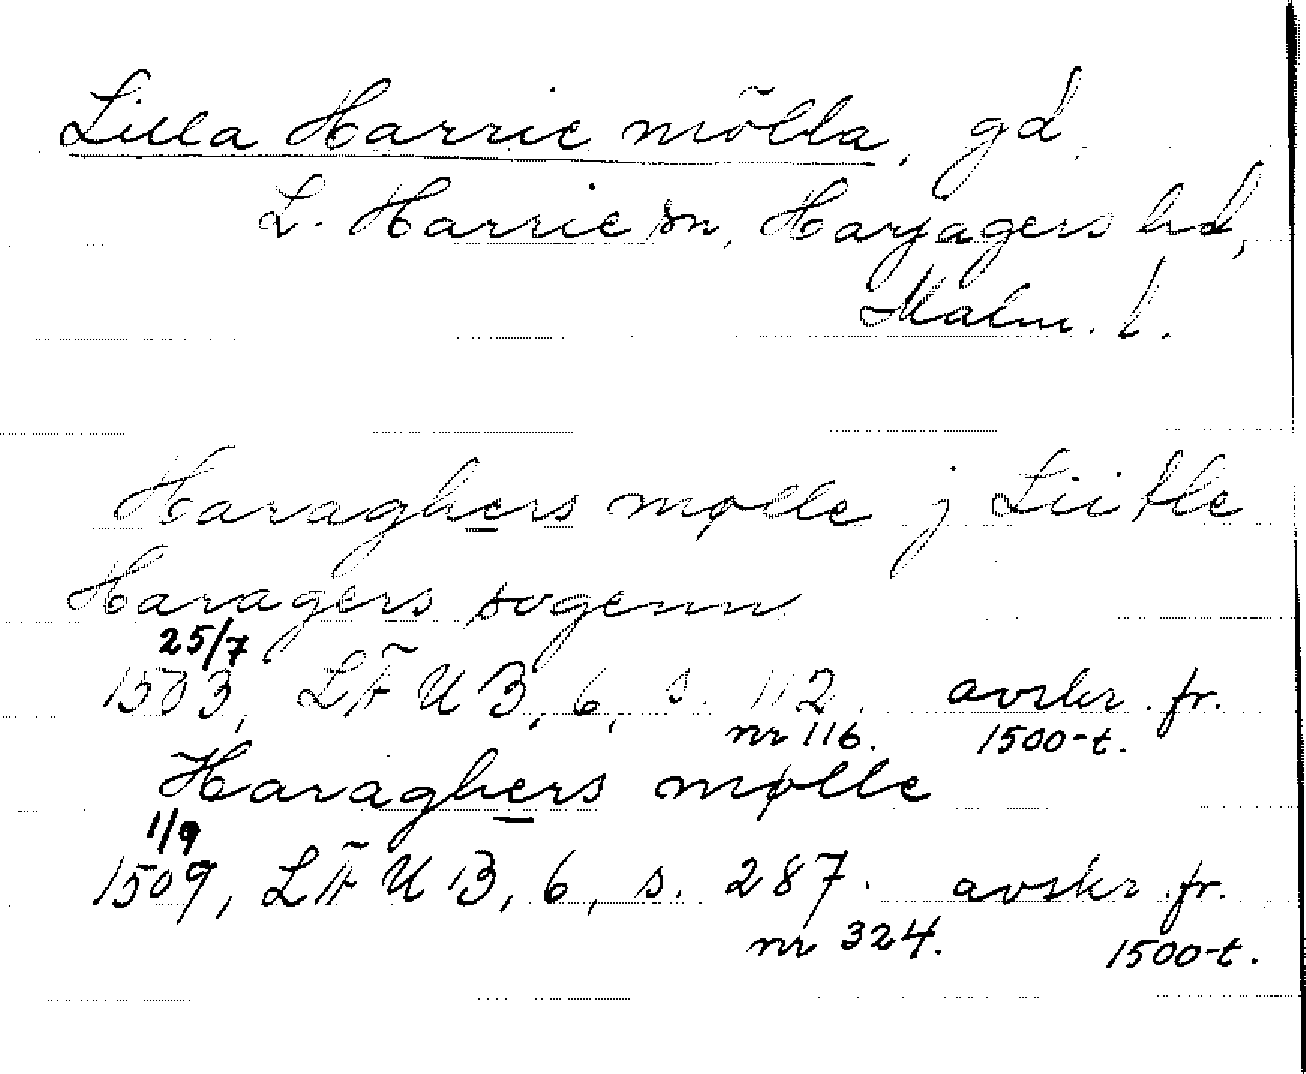 Lilla Harrie mölla, gd
L. Harrie sn, Harjagers hd,
Malm. l.
Haraghers mølle j Liitle
Haragers sogenn
25/7
1503, LÄUB, 6, s. 112. avskr. fr.
nr 116. 1500-t.
Haraghers mølle
1/9
1509, LÄUB, 6, s. 287. avskr. fr.
nr 324. 1500-t.